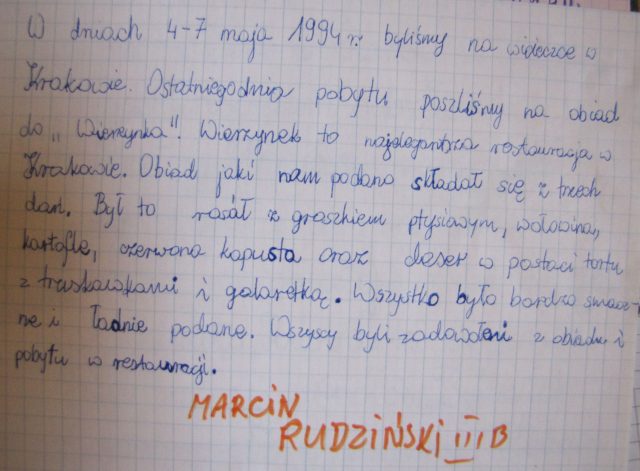 W dniach 4-7 maja 1994 r. byliśmy na wideczce w
Krakowie. Ostatniego dnia pobytu poszliśmy na obiad
do „Wierzynka". Wierzynek to najelegantsza restauracja w
Krakowie. Obiad jaki nam podano składał się z trzech
dań. Był to rosół z groszkiem ptysiowym, wołowina,
kartofle, czerwona kapusta oraz deser w postaci tortu
z truskawkami i galaretką. Wszystko było bardzo smacz-
ne i ładnie podane. Wszyscy byli zadowoleni z obiadu i
pobytu w restauracji.
MARCIN
RUDZIŃSKI III B